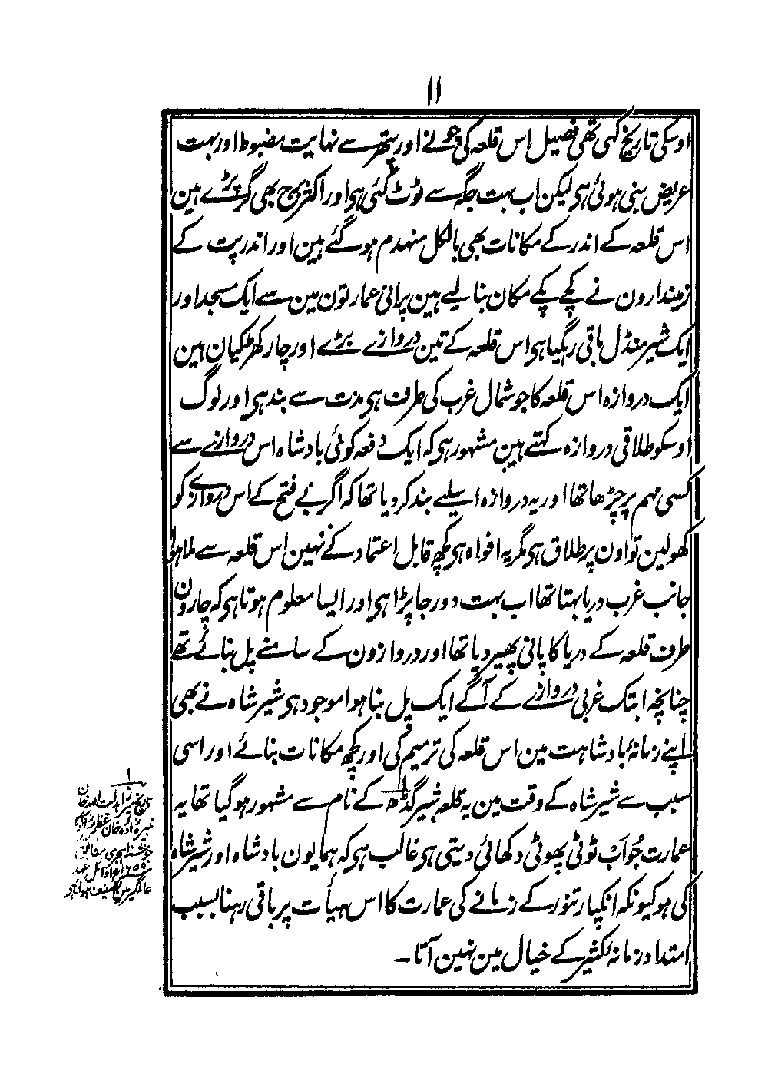 ۱۱
اوسکی تاریخ کہی تھی فصیل اس قلعہ کی چونے اور پتھر سے نہایت مضبوط اور بہت
عریض بنی ہوئی ہی لیکن اب بہت جگہ سے ٹوٹ گئی ہی اور اکثر برج بھی گر پڑے ہین
اس قلعہ کے اندر کے مکانات بھی بالکل منہدم ہو گئے ہین اور اندرپت کے
زمیندارون نے کچے پکے مکان بنا لیے ہین پرانی عمارتون مین سے ایک مسجد اور
ایک شیر منڈل باقی رہگیا ہی اس قلعہ کے تین دروازے بڑے اور چار کھڑکیان ہین
ایک دروازہ اس قلعہ کا جو شمال غرب کی طرف ہی مدت سے بند ہی اور لوگ
اوسکو طلاقی دروازہ کہتے ہین مشہور ہی کہ ایک دفعہ کوئی بادشاہ اس دروازے سے
کسی مہم پر چڑھا تھا اور یہ دروازہ اسلیے بند کر دیا تھا کہ اگر بے فتح کے اس دروازہ کو
کھولین تو اون پر طلاق ہی مگر یہ افواہ ہی کچھ قابل اعتماد کے نہین اس قلعہ سے ملا ہوا
جانب غرب دریا بہتا تھا اب بہت دور جا پڑا ہی اور ایسا معلوم ہوتا ہی کہ چارون
طرف قلعہ کے دریا کا پانی پھیر دیا تھا اور دروازون کے سامنے پل بنائے تھے
چنانچہ ابتک غربی دروازے کے آگے ایک پل بنا ہوا موجود ہی شیر شاہ نے بھی
اپنے زمانہ بادشاہت مین اس قلعہ کی ترمیم کی اور کچھ مکانات بنائے اور اسی
سبب سے شیر شاہ کے وقت مین یہ قلعہ شیر گڈھ کے نام سے مشہور ہو گیا تھا یہ
عمارت جو اب ٹوٹی پھوٹی دکھائی دیتی ہی غالب ہی کہ ہمایون بادشاہ اور شیر شاہ
کی ہو کیونکہ انکپار تنور کے زمانے کی عمارت کا اس ہیأت پر باقی رہنا بسبب
امتداد زمانہ کثیر کے خیال مین نہین آتا۔
۱